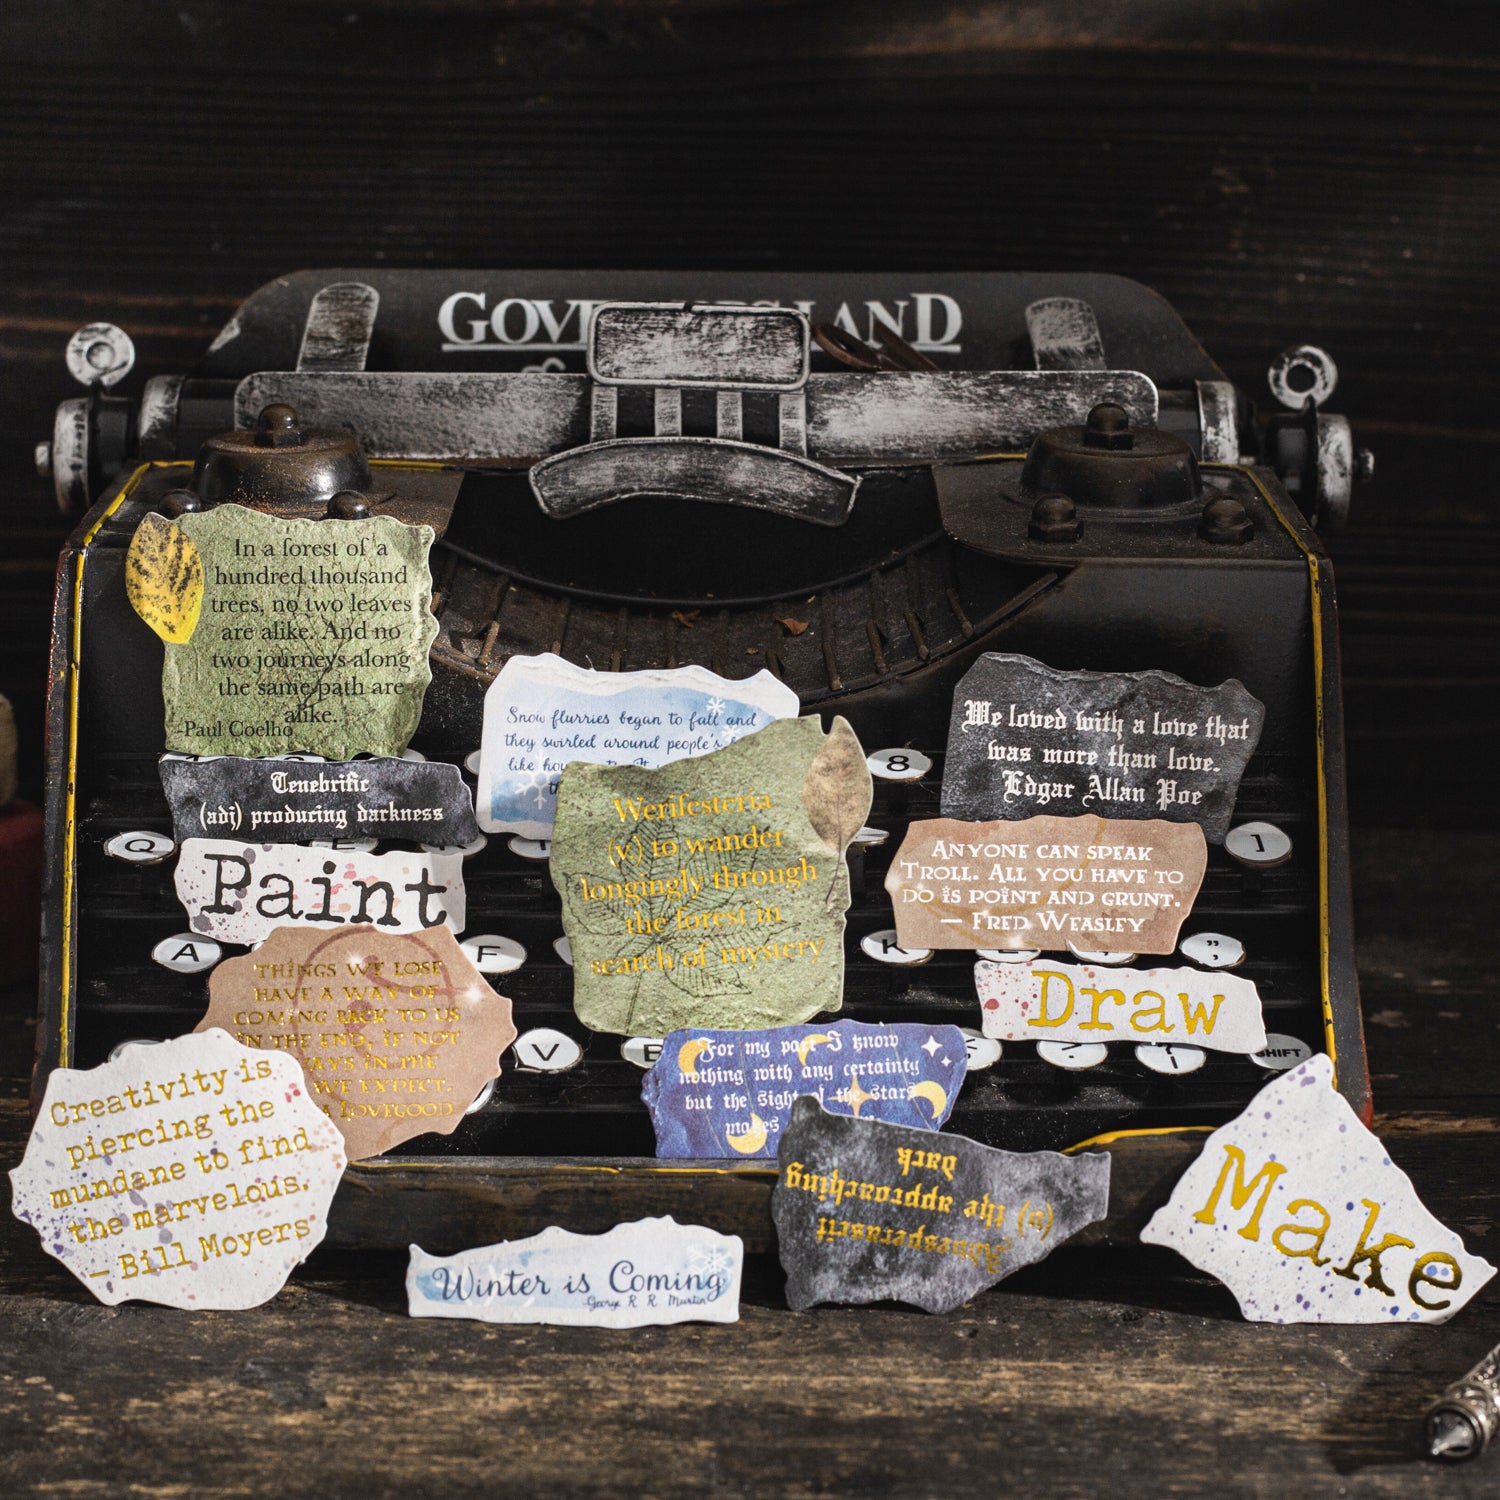 In a forest of a
hundred thousand
trees, no two leaves
are alike. And no
two journeys along
the same path are
alike.
-Paul Coelho
Tenebrific
(adj) producing darkness
Paint
THINGS WE LOSE
HAVE A WAY OF
COMING BACK TO US
IN THE END, IF NOT
IN THE
WE EXPECT.
LOVEGOOD
Creativity is
piercing the
mundane to find
the marvelous.
— Bill Moyers
Snow flurries began to fall and
they swirled around people's
like
Werifesteria
(v.) to wander
longingly through
the forest in
search of mystery
We loved with a love that
was more than love.
Edgar Allan Poe
ANYONE CAN SPEAK
TROLL. ALL YOU HAVE TO
DO IS POINT AND GRUNT.
— FRED WEASLEY
Draw
For my part I know
nothing with any certainty
but the sight of the stars
makes
(n) the approaching
dark
Winter is Coming
-George R. R. Martin
Make
8
Q
E
]
A
F
K
;
,
V
B
?
SHIFT